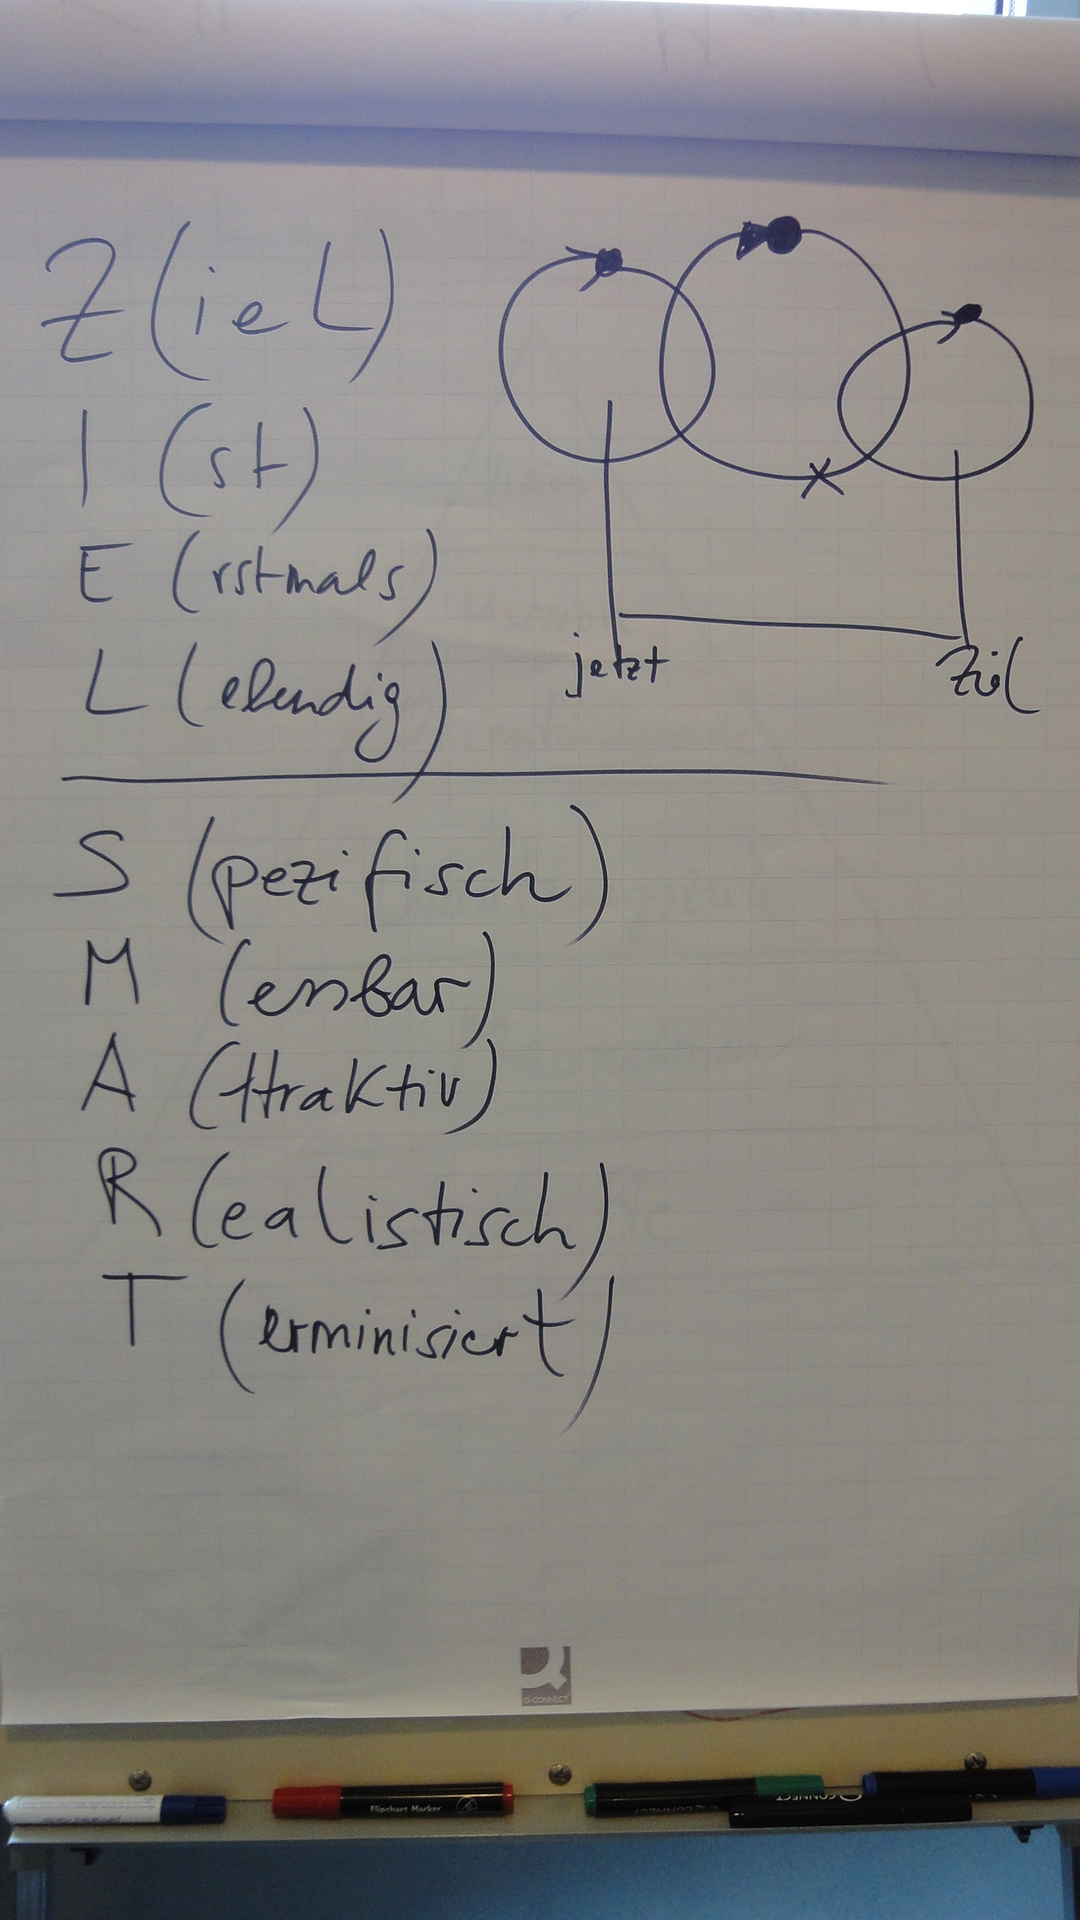 Z (ieL)
I (st)
E (rstmals)
L (ebendig)
jetzt
Ziel
S (pezifisch)
M (essbar)
A (ttraktiv)
R (ealistisch)
T (erminisiert)
Q-CONNECT
Flipchart Marker
CONNECT